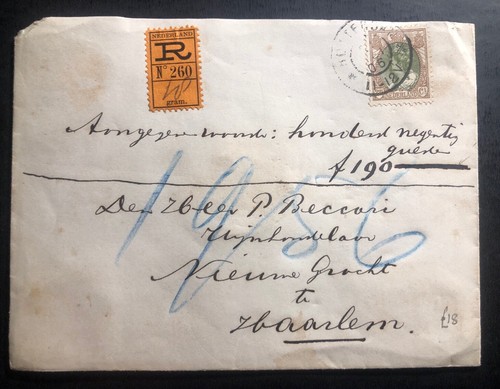 NEDERLAND
R
No 260
gram.
11-12
NEDERLAND
Aangegeven waarde: honderd negentig
gulden
f 190
1956
Den Heer P. Beccari
Wijnhandelaar
Nieuwe Gracht
te
Haarlem.
£18